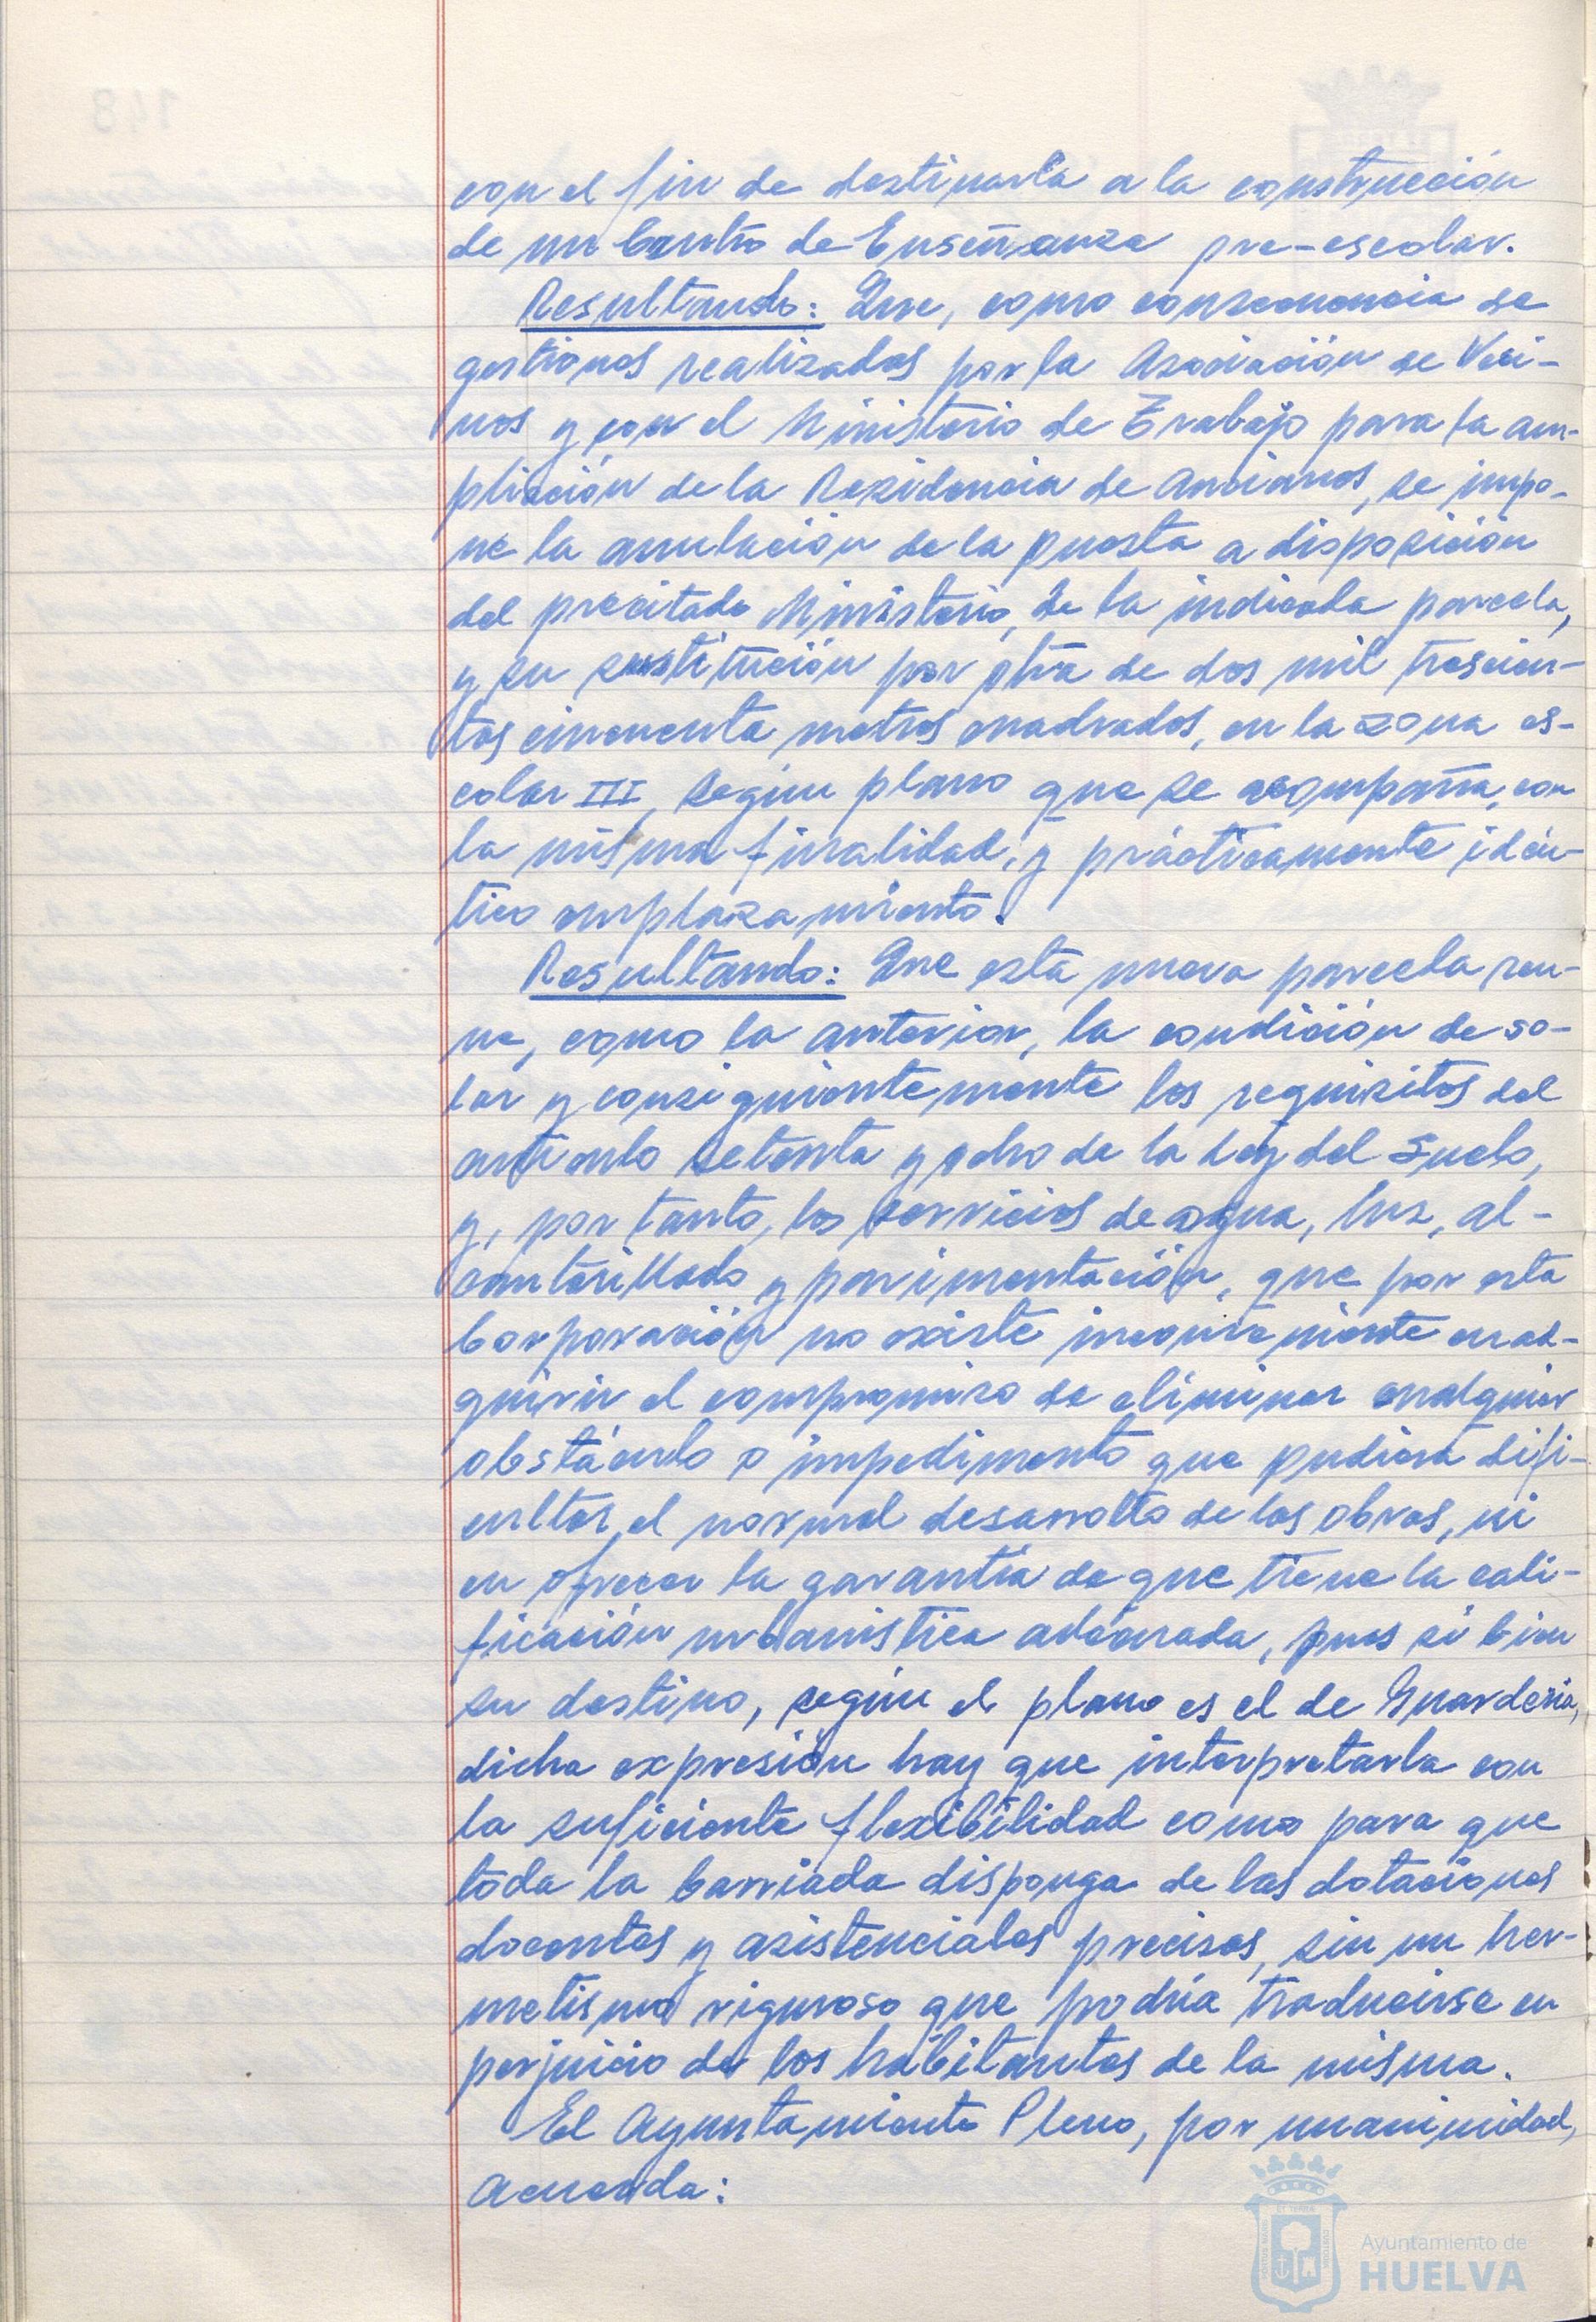 con el fin de destinarla a la construcción
de un Centro de Enseñanza pre-escolar.
Resultando: Que, como consecuencia de
gestiones realizadas por la Asociación de Veci-
nos y con el Ministerio de Trabajo para la am-
pliación de la Residencia de Ancianos, se impo-
ne la anulación de la puesta a disposición
del precitado Ministerio, de la indicada parcela,
y su sustitución por otra de dos mil trescien-
tos cincuenta metros cuadrados, en la zona es-
colar III, según plano que se acompaña, con
la misma finalidad, y prácticamente idén-
tico emplazamiento.
Resultando: Que esta nueva parcela reu-
ne, como la anterior, la condición de so-
lar y consiguientemente los requisitos del
artículo setenta y ocho de la Ley del Suelo,
y, por tanto, los servicios de agua, luz, al-
cantarillado y pavimentación, que por esta
Corporación no existe inconveniente en ad-
quirir el compromiso de eliminar cualquier
obstáculo o impedimento que pudiera difi-
cultar el normal desarrollo de las obras, ni
en ofrecer la garantía de que tiene la cali-
ficación urbanística adecuada, pues si bien
su destino, según el plano es el de Guardería,
dicha expresión hay que interpretarla con
la suficiente flexibilidad como para que
toda la barriada disponga de las dotaciones
docentes y asistenciales precisas, sin un her-
metismo riguroso que podría traducirse en
perjuicio de los habitantes de la misma.
El Ayuntamiento Pleno, por unanimidad,
acuerda:
Ayuntamiento de
HUELVA
148